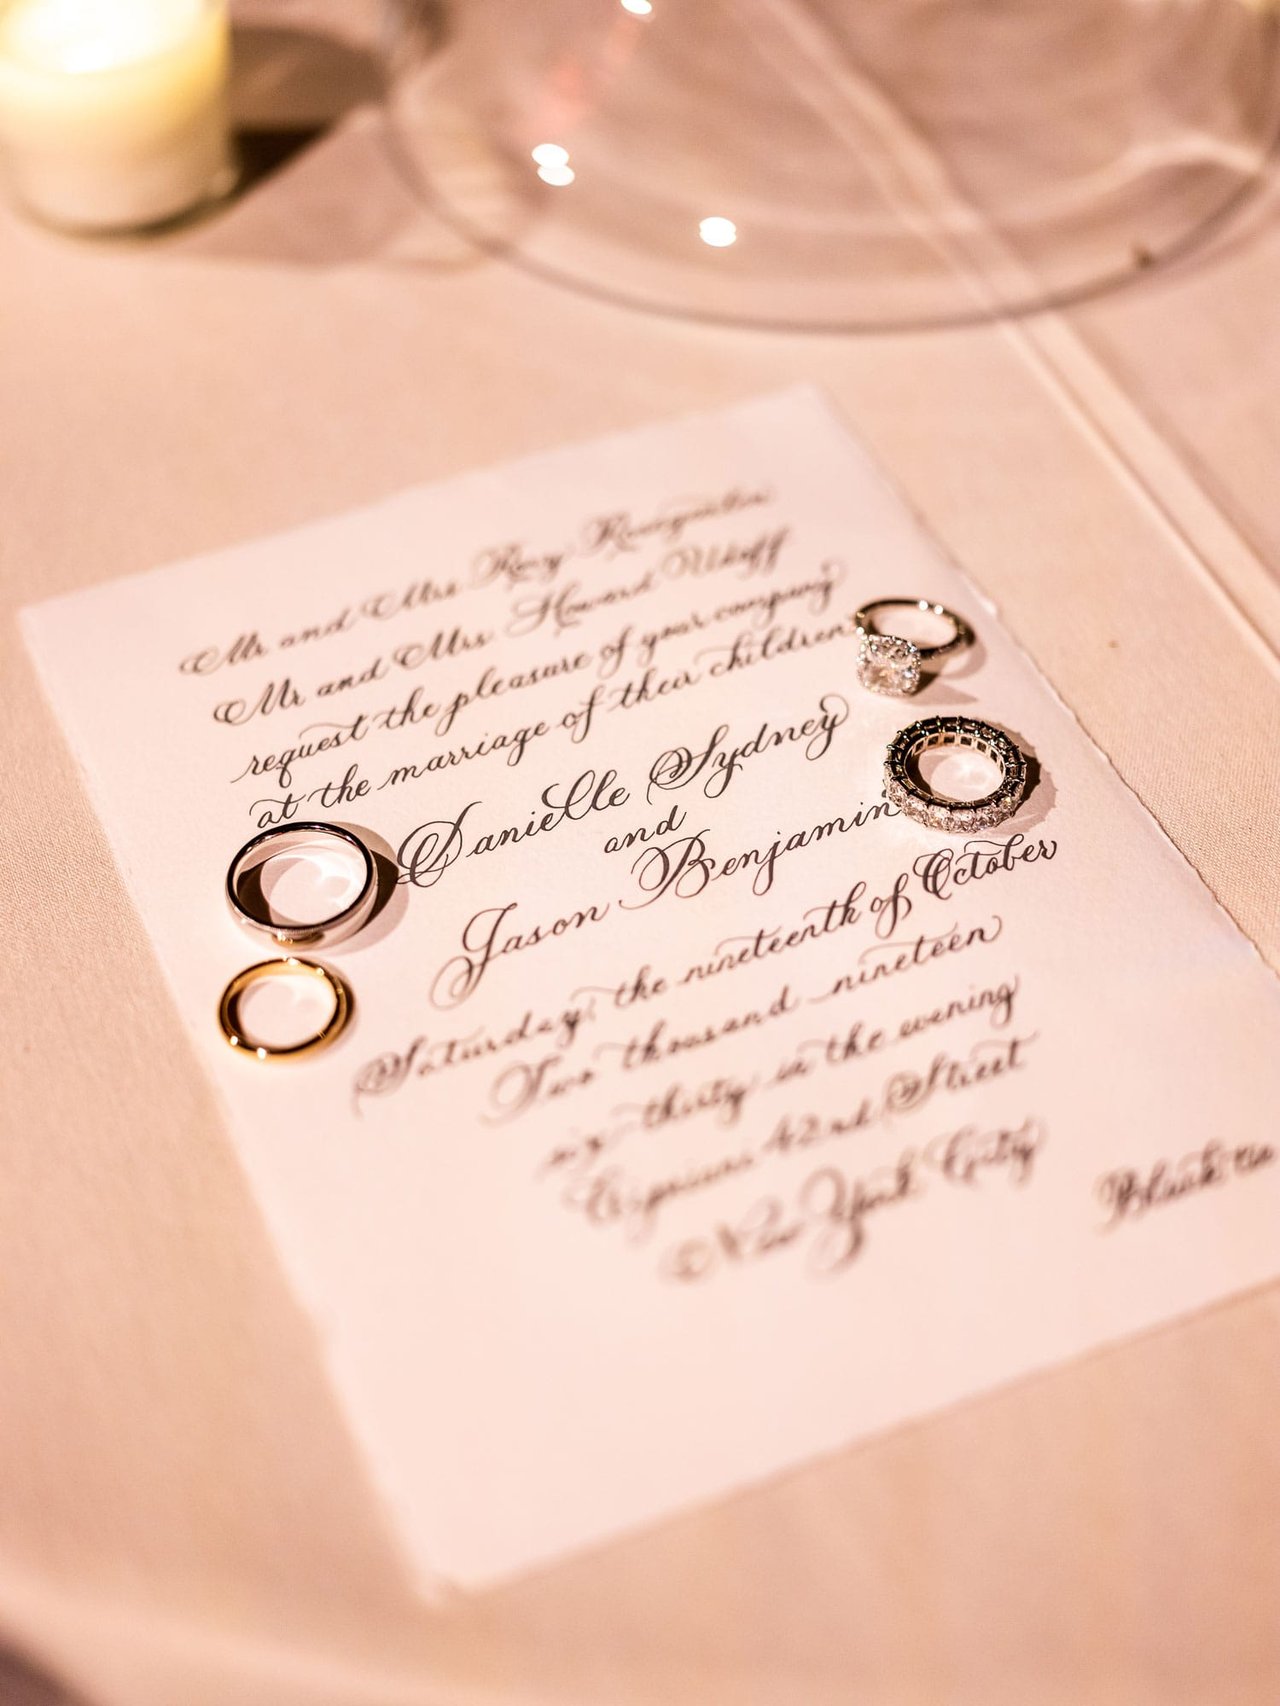 Mr and Mrs Rory Rosegarten
Mr and Mrs Howard Udoff
request the pleasure of your company
at the marriage of their children
Danielle Sydney
and
Jason Benjamin
Saturday, the nineteenth of October
Two thousand nineteen
six-thirty in the evening
Cipriani 42nd Street
New York City
Black